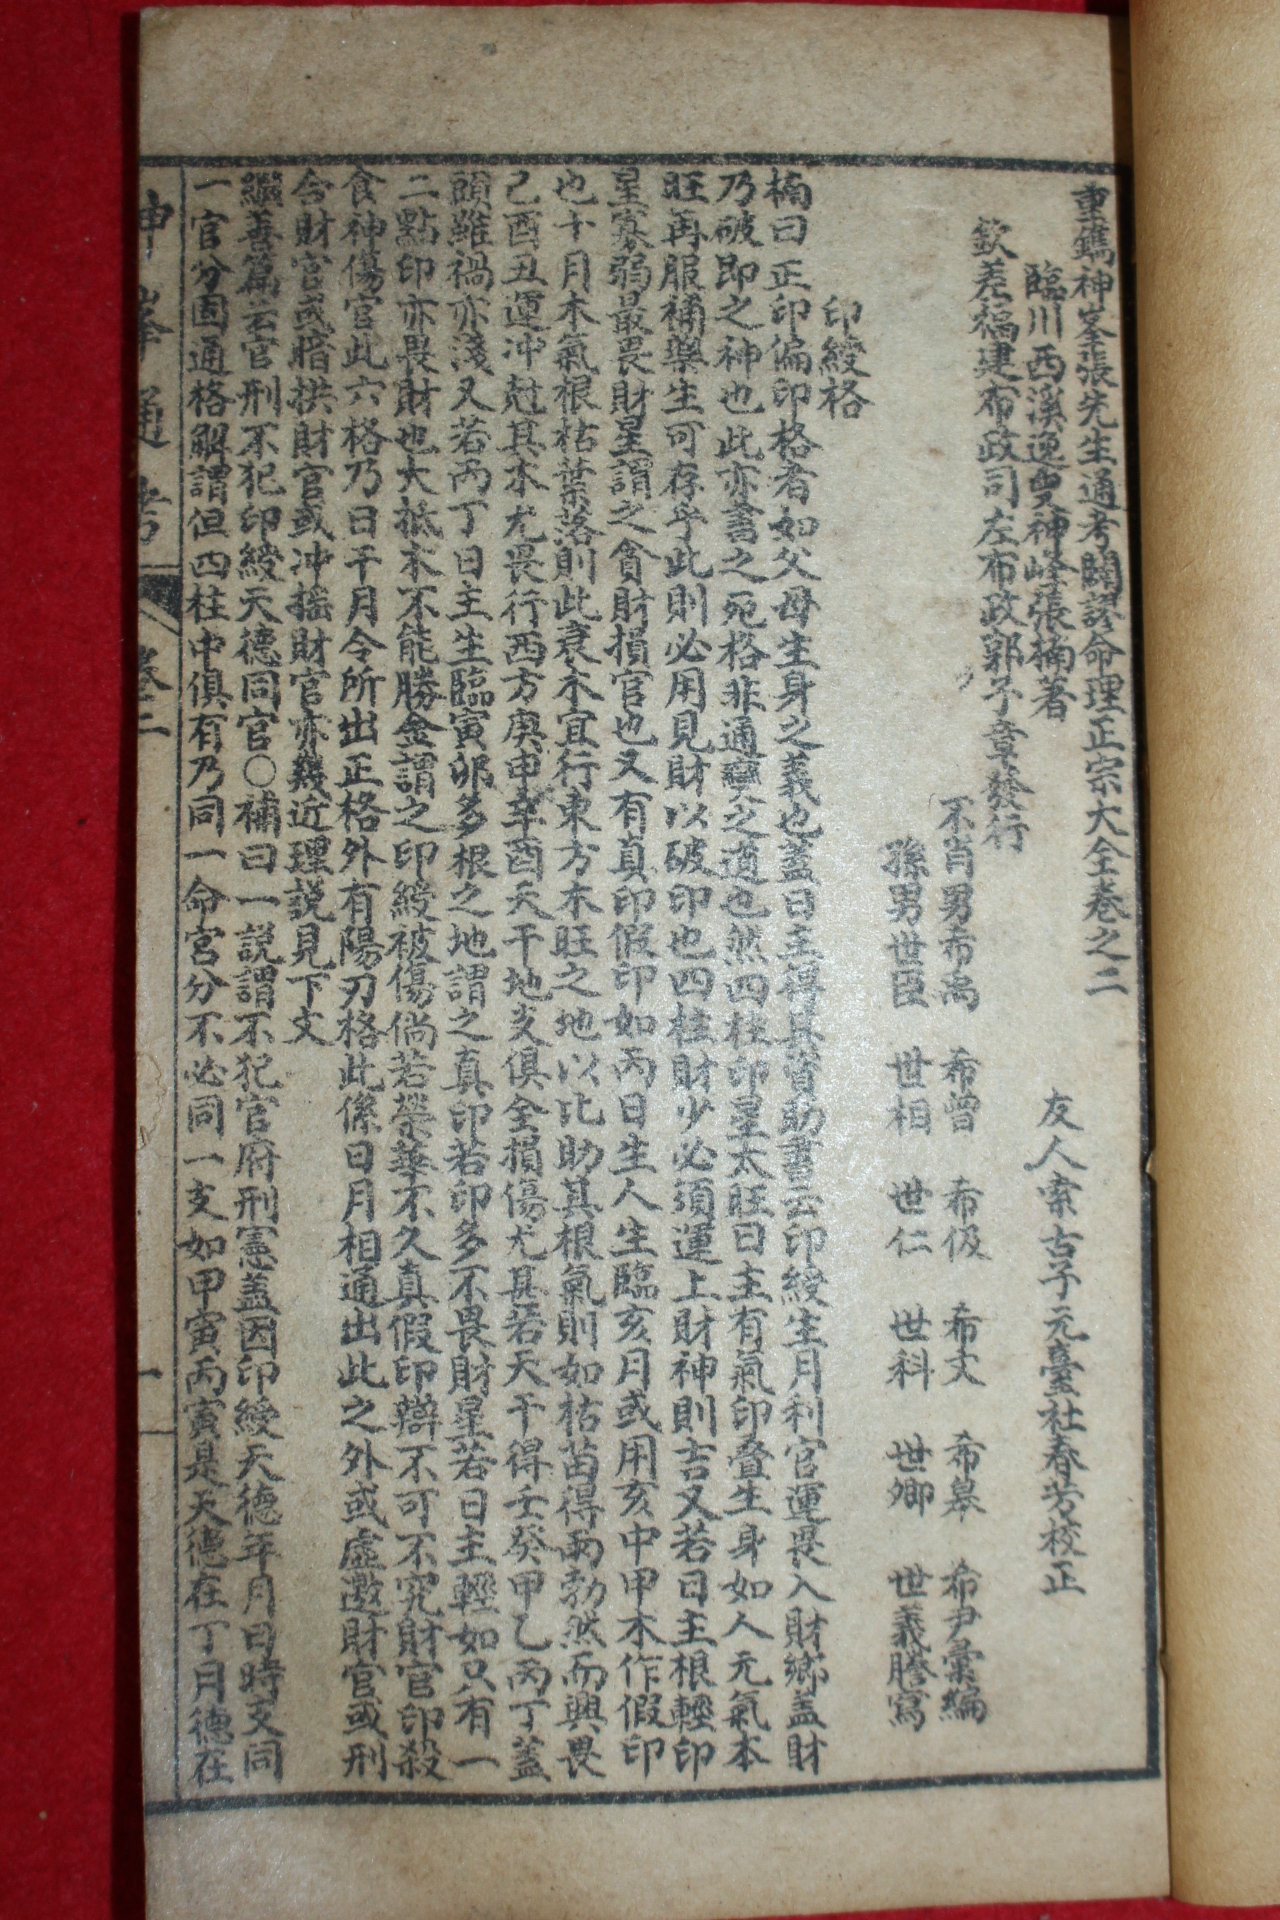 重鐫神峯張先生通考闢謬命理正宗大全卷之二
臨川西溪逸叟神峰張楠著
友人索古子元臺社春芳校正
欽差福建布政司左布政鄭子章發行
不肖男希禹 希曾 希伋 希文 希皋 希尹彙編
孫男世臣 世相 世仁 世科 世卿 世義謄寫
印綬格
楠曰正印偏印格者如父母生身之義也蓋日主得其資助書云印綬生月利官運畏入財鄉盖財
乃破即之神也此亦書之死格非通變之道也然四柱印星太旺日主有氣印叠生身如人元氣本
旺再服補藥生可存乎此則必用見財以破印也四柱財少必須運上財神則吉又若日主根輕印
星寡弱最畏財星謂之貪財損官也又有真印假印如丙日生人生臨亥月或用亥中甲木作假印
也十月木氣根枯葉落則此衰木宜行東方木旺之地以比助其根氣則如枯苗得雨勃然而興畏
己酉丑運冲尅其木尤畏行西方庚申辛酉天干地支俱全損傷尤甚若天干得壬癸甲乙丙丁蓋
頭雖禍亦淺又若丙丁日主生臨寅卯多根之地謂之真印若印多不畏財星若日主輕如只有一
二點印亦畏財也大抵木不能勝金謂之印綬被傷倘若榮華不久真假印辯不可不究財官印殺
食神傷官此六格乃日干月令所出正格外有陽刃格此係日月相通出此之外或虛邀財官或刑
合財官或暗拱財官或冲搖財官亦幾近理説見下文
繼善篇云官刑不犯印綬天德同官○補曰一説謂不犯官府刑憲盖因印綬天德年月日時支同
一官分固通格解謂但四柱中俱有乃同一命宮分不必同一支如甲寅丙寅是天德在丁月德在
神峯通考 卷二 一